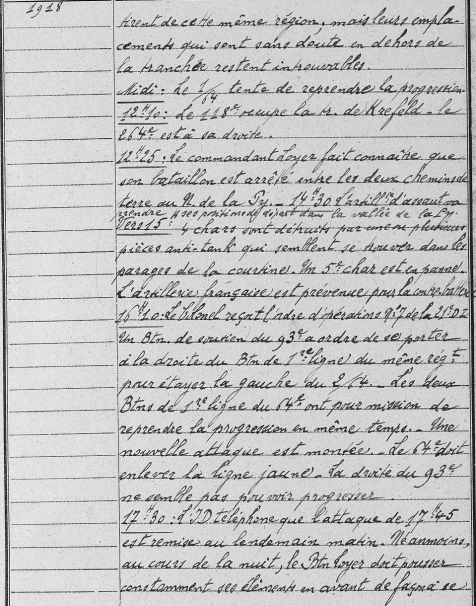 1918
tirent de cette même région, mais leurs empla-
cements qui sont sans doute en dehors de
la tranchée restent introuvables.
Midi : Le 2/64 tente de reprendre la progression
12H10 : Le 118e occupe la tr. de Krefeld - le
264e est à sa droite.
12H25 : Le commandant Loyer fait connaître que
son bataillon est arrêté entre les deux chemins de
terre au N. de la Py. - 14H30 L'artillie d'assaut va
prendre ses positions de départ dans la vallée de la Py.
Vers 15H 4 chars sont détruits par une ou plusieurs
pièces anti-tank qui semblent se trouver dans les
parages de la courtine. Un 5e char est en panne.
L'artillerie française est prévenue pour la contre-batterie
16H10 : Le Colonel reçoit l'ordre d'opérations No 7 de la 21e D.I.
Un Btn. de soutien du 93e a ordre de se porter
à la droite du Btn de 1re ligne du même régt
pour étayer la gauche du 2/64. - Les deux
Btns de 1re ligne du 64e ont pour mission de
reprendre la progression en même temps. - Une
nouvelle attaque est montée. - Le 64e doit
enlever la ligne jaune. - La droite du 93e
ne semble pas pouvoir progresser.
17H30 : L'I.D téléphone que l'attaque de 17H45
est remise au lendemain matin. Néanmoins,
au cours de la nuit, le Btn Loyer doit pousser
constamment ses éléments en avant de façon à se